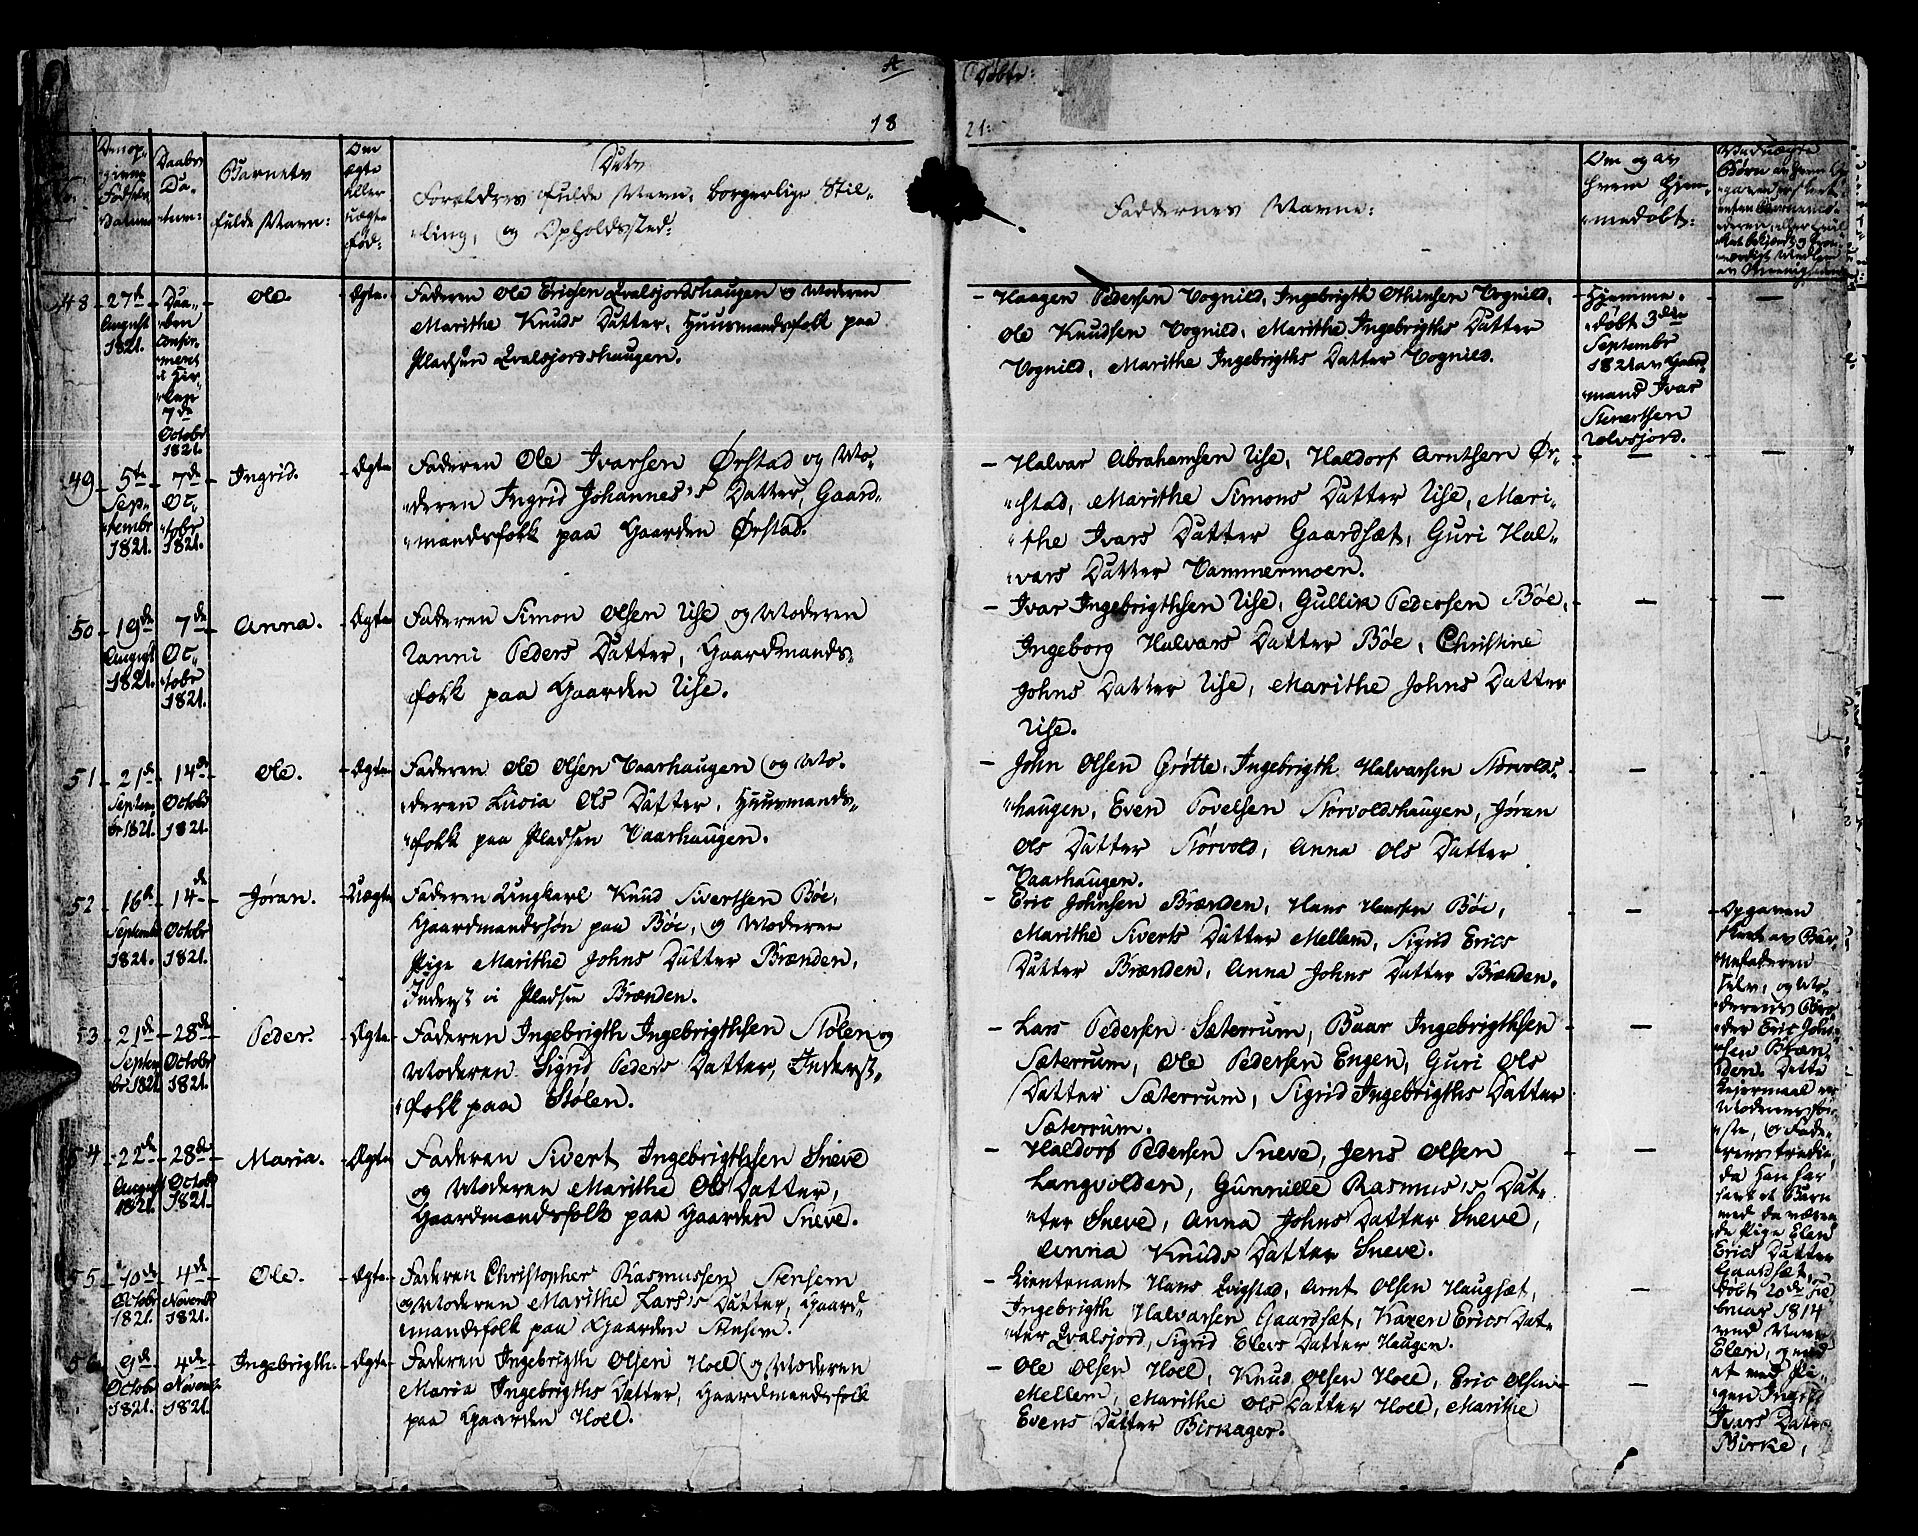 A
Døbte:
18
21:
Den op-
givne
Fødsels
Datum
Daabs
Da-
tum:
Barnets
fulde Navn:
Om
ægte
eller
uægte
fød:
Dets
Forældres fulde Navn, borgerlige Stil-
ling, og Opholdssted:
Faddernes Navne:
Om og av
hvem hjem-
medøbt:
48 27de August 1821. Daa-
ben
confir-
meret
i Kir-
ken
7de
Octobr
1821.
Ole.
Ægte
Faderen Ole Ericsen Qvalsjordshaugen og Moderen
Marithe Knuds Datter, Huusmandsfolk paa
Pladsen Qvalsjordshaugen.
Haagen Pedersen Vognild, Ingebrigth Othinsen Vognild,
Ole Knudsen Vognild, Marithe Ingebrigths Datter
Vognild, Marithe Ingebrigths Datter Vognild.
Hjemme-
døbt 3die
Septembr
1821 av Gaard-
mand Ivar
Sivertsen
49 5te Septembr 1821. 7de Octobr 1821.
Ingrid.
Ægte
Faderen Ole Ivarsen Ørstad og Mo-
deren Ingrid Johannes's Datter, Gaard-
mandsfolk paa Gaarden Ørstad.
Halvar Abrahamsen Use, Haldorf Arntsen Ør-
stad, Marithe Simons Datter Use, Mari-
the Ivars Datter Gaardsæt, Guri Hal-
vars Datter Vammermoen.
50 19de August 1821. 7de Octobr 1821.
Anna.
Ægte
Faderen Simon Olsen Use og Moderen
Ranni Peders Datter, Gaardmands-
folk paa Gaarden Use.
Ivar Ingebrigthsen Use, Gullik Pedersen Böe,
Ingeborg Halvars Datter Böe, Christine
Johns Datter Use, Marithe Johns Datter
Use.
51 21de Septembr 1821. 14de Octobr 1821.
Ole.
Ægte
Faderen Ole Olsen Vaarhaugen og Mo-
deren Lucia Ols Datter, Huusmands-
folk paa Pladsen Vaarhaugen.
John Olsen Grøtte, Ingebrigth Halvarsen Størvolds-
haugen, Even Povelsen Størvoldshaugen, Jøran
Ols Datter Størvold, Anna Ols Datter
Vaarhaugen.
52 16de Septembr 1821. 14de Octobr 1821.
Jøran.
Uægte
Faderen Ungkarl Knud Sivertsen Böe,
Gaardmandssøn paa Böe, og Moderen
Pige Marithe Johns Datter Brænden,
Inderst i Pladsen Brænden.
Eric Johnsen Brænden, Hans Hanssen Böe,
Marithe Siverts Datter Mellem, Sigrid Erics
Datter Brænden, Anna Johns Datter Brænden.
Opgaven
skeet av Bar-
nefaderen
selv, og Mo-
derens Bro-
der Eric John-
sen Bræn-
den. Dette
Leiermaal er
Moderens før-
ste, og Fade-
rens tredie,
da han har
havt et Barn
med da væren-
de Pige Elen
Erics Datter
Gaardsæt,
døbt 20de Fe-
bruar 1814
ved Navn
Elen, og et
med Pi-
gen Ingrid
Ivars Datter
Birke,
53 21de Septembr 1821 28de Octobr 1821.
Peder.
Ægte
Faderen Ingebrigth Ingebrigthsen Stølen og
Moderen Sigrid Peders Datter, Inderst-
folk paa Stølen.
Lars Pedersen Sæterrum, Baar Ingebrigthsen
Sæterrum, Ole Pedersen Engen, Guri Ols
Datter Sæterrum, Sigrid Ingebrigths Datter
Sæterrum.
54 22de August 1821. 28de Octobr 1821.
Maria.
Ægte
Faderen Sivert Ingebrigthsen Sneve
og Moderen Marithe Ols Datter,
Gaardmandsfolk paa Gaarden Sneve.
Haldorf Pedersen Sneve, Jens Olsen
Langvolden, Gunnille Rasmus's Dat-
ter Sneve, Anna Johns Datter Sneve,
Anna Knuds Datter Sneve.
55 10de Octobr 1821. 4de Novembr 1821.
Ole.
Ægte
Faderen Christopher Rasmussen Stensem
og Moderen Marithe Lars's Datter, Gaard-
mandsfolk paa Gaarden Stensem.
Lieutenant Hans Qvigstad, Arnt Olsen Haugsæt,
Ingebrigth Halvarsen Gaardsæt, Karen Erics Dat-
ter Qvalsjord, Sigrid Elevs Datter Haugen.
56 9de Octobr 1821. 4de Novembr 1821.
Ingebrigth.
Ægte
Faderen Ingebrigth Olsen Hoel og Moderen
Maria Ingebrigths Datter, Gaardmandsfolk
paa Gaarden Hoel.
Ole Olsen Hoel, Knud Olsen Hoel, Eric Olsen
Mellem, Marithe Ols Datter Hoel, Marithe
Evens Datter Birkager.